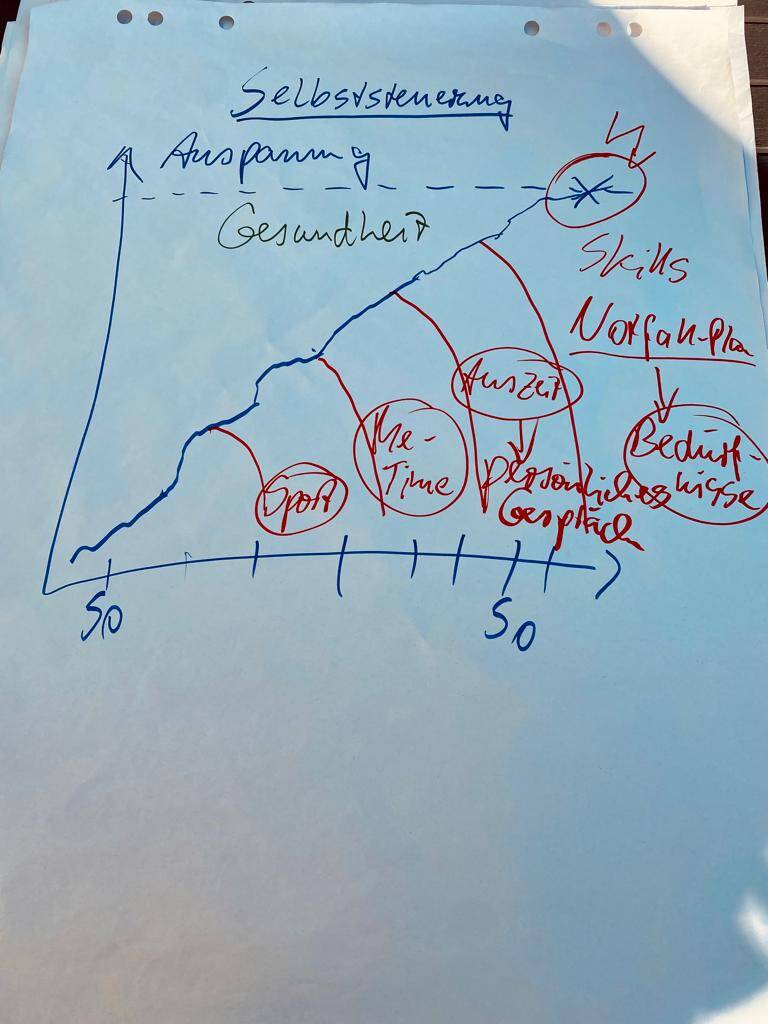 Selbststeuerung
Anspannung
Gesundheit
Skills
Notfall-Plan
Auszeit
Me-
Time
Sport
Bedürf-
nisse
persönliches
Gespräch
So
So